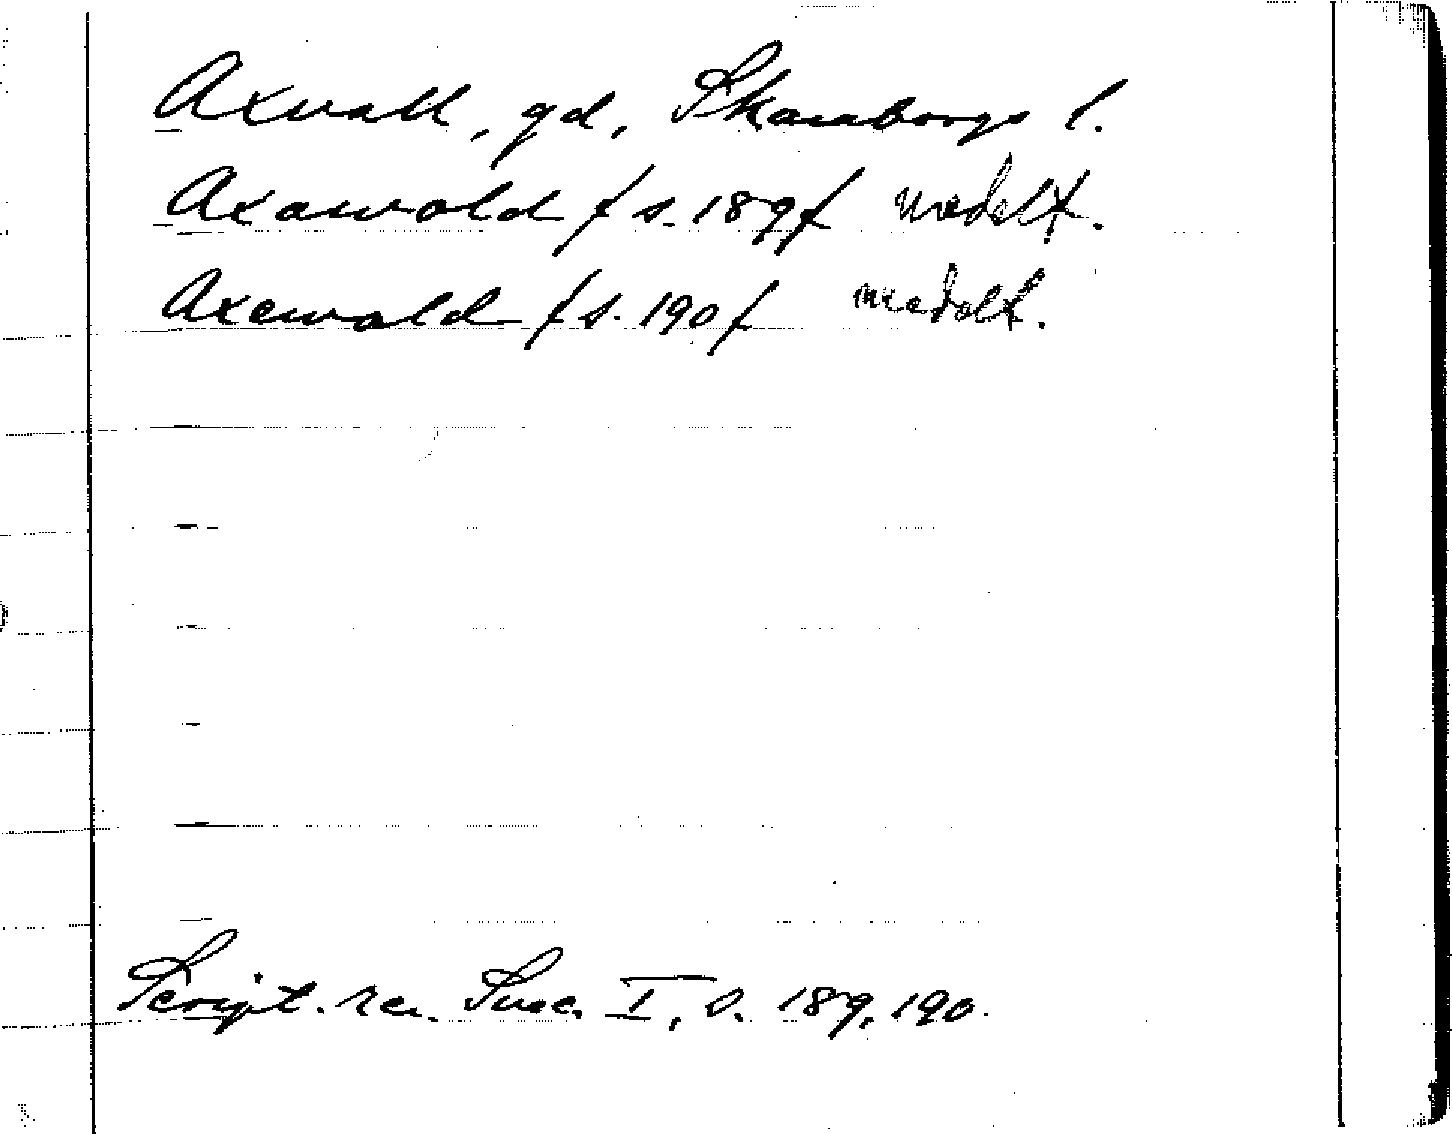 Axvall, gd, Skaraborgs l.
Axawald /s. 189/ medelt.
Axewald /s. 190/ medelt.
Script. rer. Suec. I, s. 189, 190.